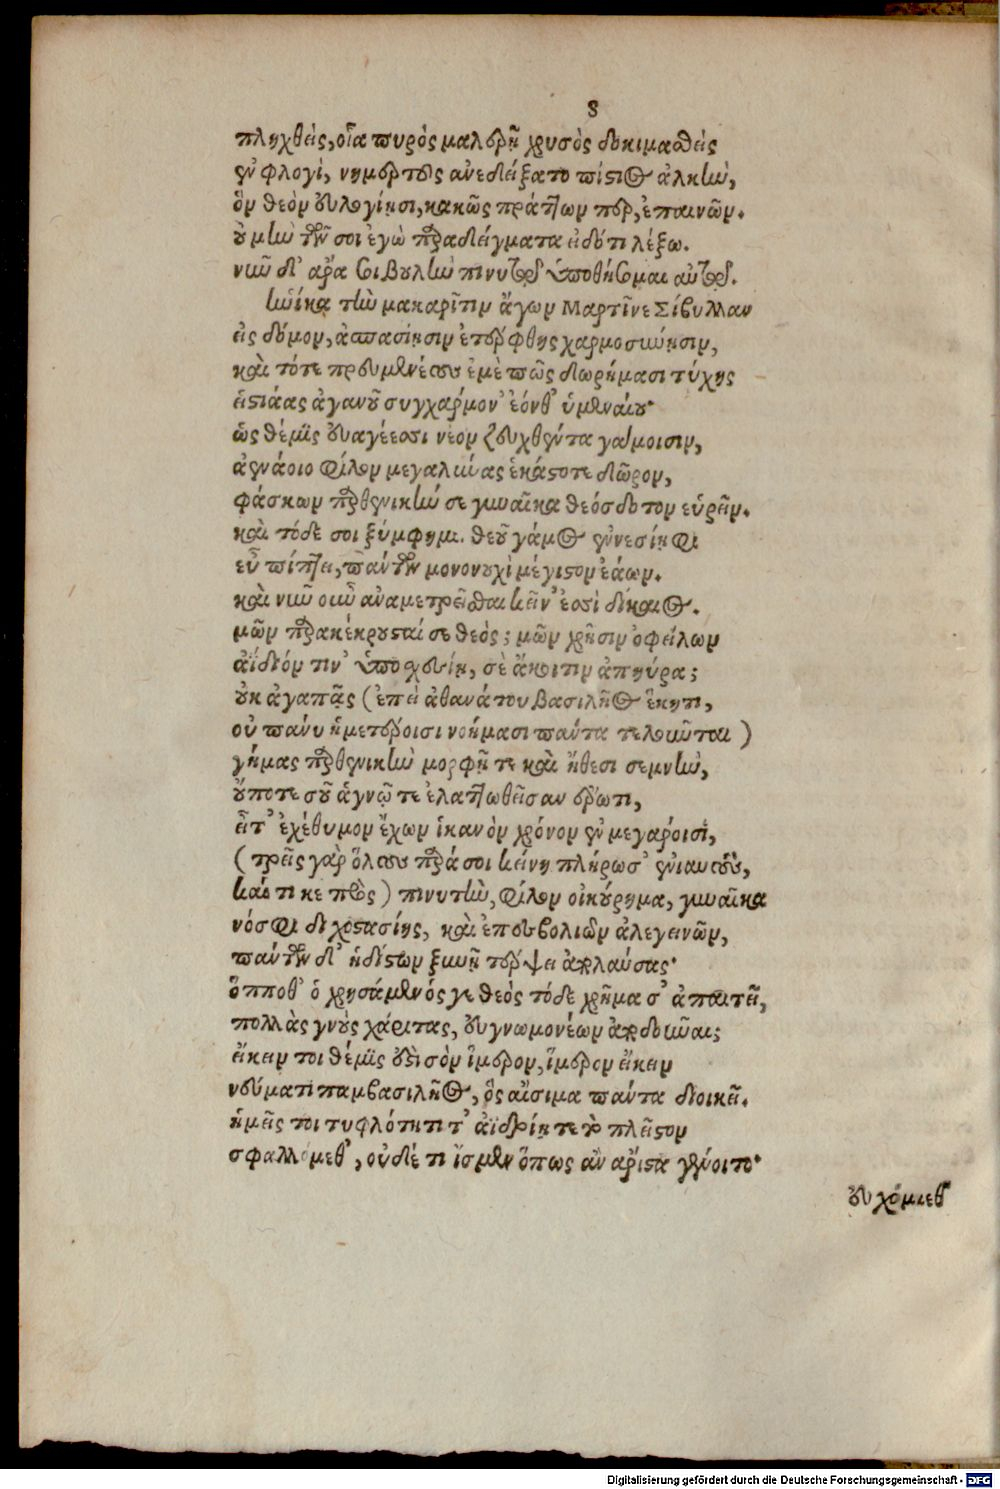 8
πληχθεὶς, οἷα πυρὸς μαλερῇ χρυσὸς δοκιμασθεὶς
ἐν φλογὶ, νημερτὲς ἀνεδείξατο πίστιος ἀλκὴν,
ὃν θεὸν εὐλογίῃσι, κακῶς πράττων περ, ἐπαινῶν.
οὐ μὴν τῶν σοι ἐγὼ παραδείγματα εἰδότι λέξω.
νῦν δ' ἄρα σὴν βουλὴν πινυτὴν ὑποθήσομαι αὐτὸς.
ἡνίκα τὴν μακαρῖτιν ἄγων Μαρτῖνε Σίβυλλαν
εἰς δόμον, ἀσπασίῃσιν ἐτέρφθης χαρμοσύνῃσιν,
καὶ τότε προυμνέεσο ἐμὲ πῶς δωρήμασι τύχης
εἱστίαας ἀγανοῦ συγχαρμον' ἐόνθ' ὑμεναίου·
ὡς θέμις εὐαγέεσσι νέον ζευχθέντα γάμοισιν,
ἀενάοιο φίλον μεγαλύνας ἑκάστοτε δῶρον,
φάσκων παρθενικήν σε γυναῖκα θεόσδοτον εὑρεῖν.
καὶ τόδε σοι ξύμφημι. θεοῦ γάμος ἐννεσίῃφι
εὖ πίπτει, πάντων μονονουχὶ μέγιστον ἐάων.
καὶ νῦν οὖν ἀναμετρεῖσθαι κεῖν' ἐστὶ δίκαιος.
μῶν παρακέκρουσταί σε θεός; μῶν χρῆσιν ὀφείλων
ἀΐδιόν τιν' ὑποσχεσίῃ, σὲ ἄκοιτιν ἀπηύρα;
οὐκ ἀγαπᾷς (ἐπεὶ ἀθανάτου βασιλῆος ἕκητι,
οὐ πάνυ ἡμετέροισι νοήμασι πάντα τελεῦνται)
γήμας παρθενικὴν μορφῇ τε καὶ ἤθεσι σεμνὴν,
οὔποτε σοῦ ἁγνῷ τε ἐλαττωθεῖσαν ἔρωτι,
εἶτ' ἐχέθυμον ἔχων ἱκανὸν χρόνον ἐν μεγάροισι,
(τρεῖς γὰρ ὅλους παρά σοι κείνη πλήρωσ' ἐνιαυτοὺς,
καί τι κε πρὸς) πινυτὴν, φίλον οἰκούρημα, γυναῖκα
νόσφι διχοστασίης, καὶ ἐπεσβολιῶν ἀλεγεινῶν,
πάντων δ' ἡδίστων ξυνῇ τέρψει ἀπολαύσας·
ὅπποθ' ὁ χρησάμενός γε θεὸς τόδε χρῆμα σ' ἀπαιτεῖ,
πολλὰς γνοὺς χάριτας, εὐγνωμονέων ἀποδοῦναι;
εἴκειν τοι θέμις ἐστὶ σὸν ἵμερον, ἵμερον εἴκειν
νεύματι παμβασιλῆος, ὃς αἴσιμα πάντα διοικεῖ.
ἡμεῖς τοι τυφλότητι τ' ἀϊδρίῃ τε τὸ πλεῖστον
σφαλλόμεθ', οὐδέ τι ἴσμεν ὅπως ἂν ἄριστα γένοιτο·
εὐχόμεθ'
Digitalisierung gefördert durch die Deutsche Forschungsgemeinschaft - DFG